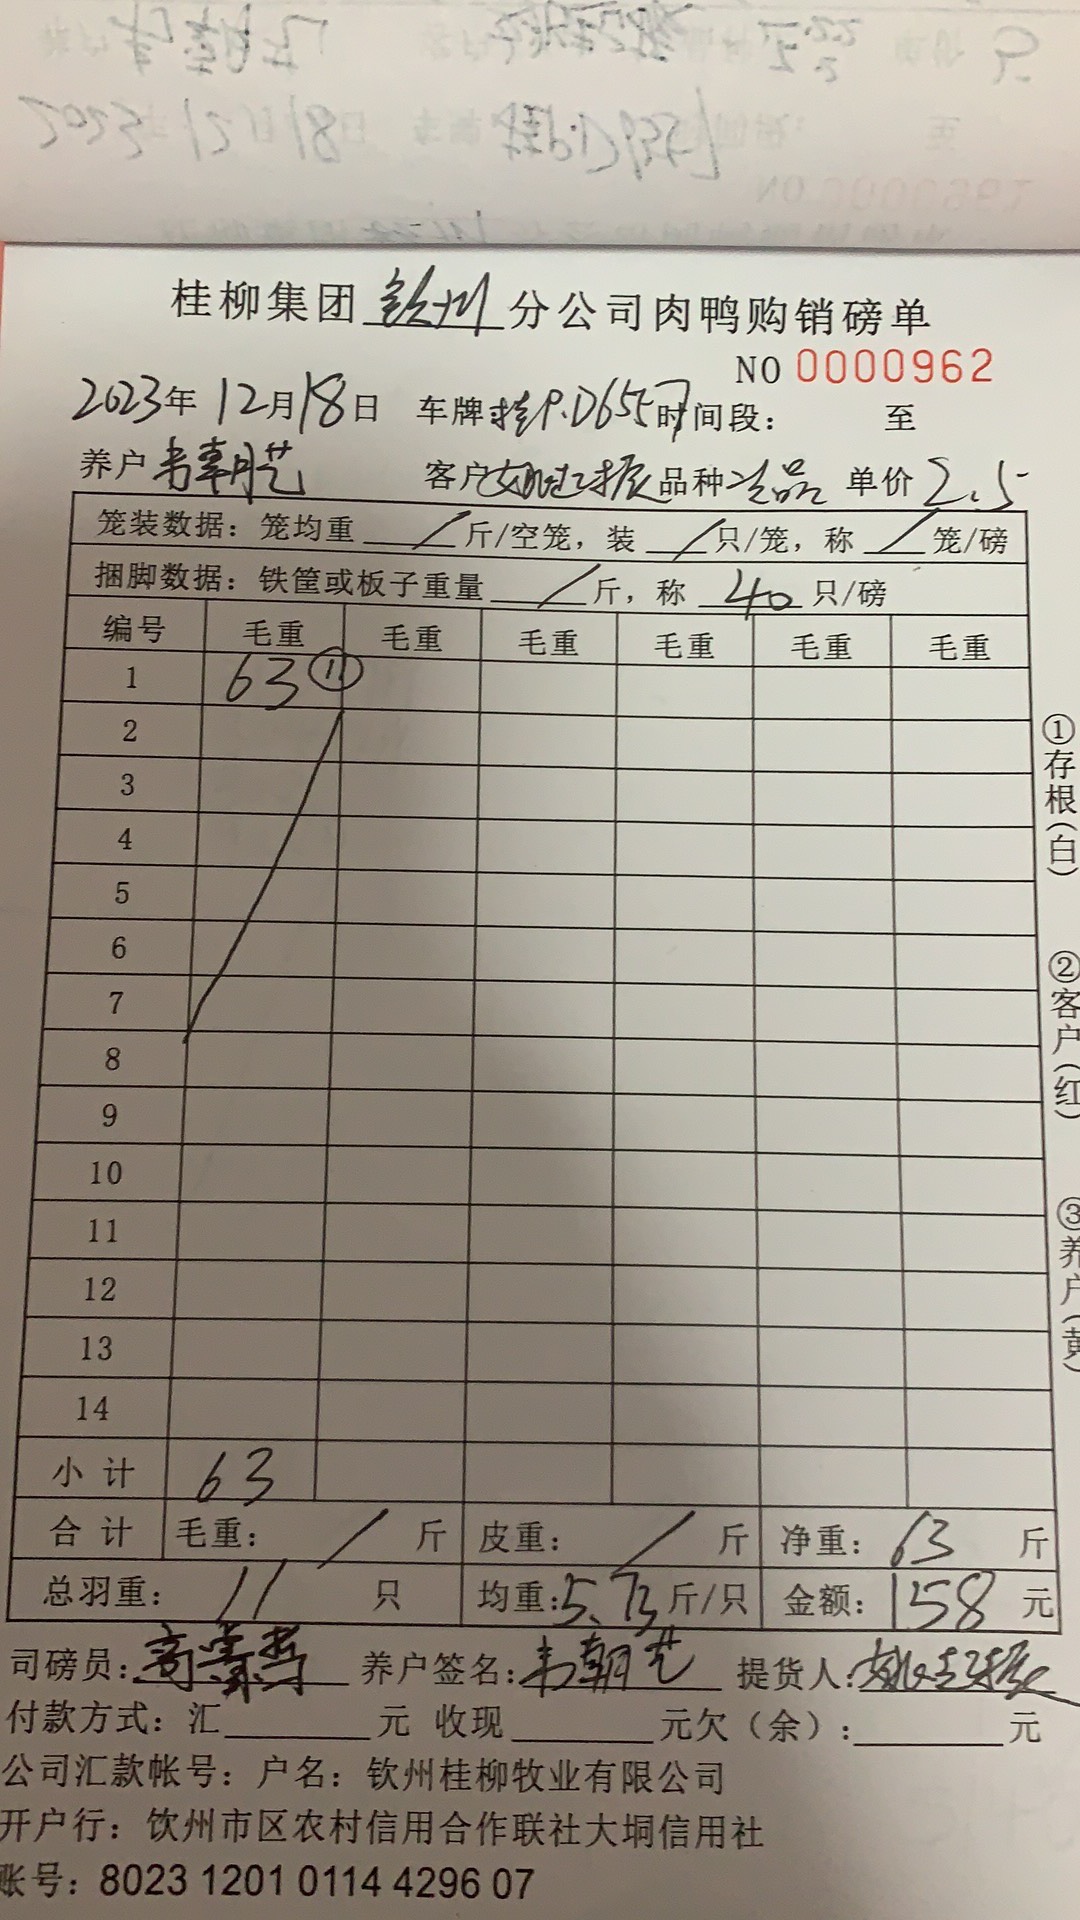 桂柳集团 钦州 分公司肉鸭购销磅单
NO 0000962
2023年 12月18日 车牌桂P.D655 时间段： 至
养户 韦朝艺 客户 品种 次品 单价 2.5
笼装数据：笼均重 / 斤/空笼，装 / 只/笼，称 / 笼/磅
捆脚数据：铁筐或板子重量 / 斤，称 40 只/磅
编号 毛重 毛重 毛重 毛重 毛重 毛重
1 63 ⑪
2
3
4
5
6
7
8
9
10
11
12
13
14
小计 63
合计 毛重： / 斤 皮重： / 斤 净重： 63 斤
总羽重： 11 只 均重：5.73 斤/只 金额： 158 元
司磅员： 养户签名：韦朝艺 提货人：
付款方式：汇 元 收现 元欠（余）： 元
公司汇款帐号：户名：钦州桂柳牧业有限公司
开户行：钦州市区农村信用合作联社大垌信用社
账号：8023 1201 0114 4296 07
①存根(白)
②客户(红)
③养户(黄)